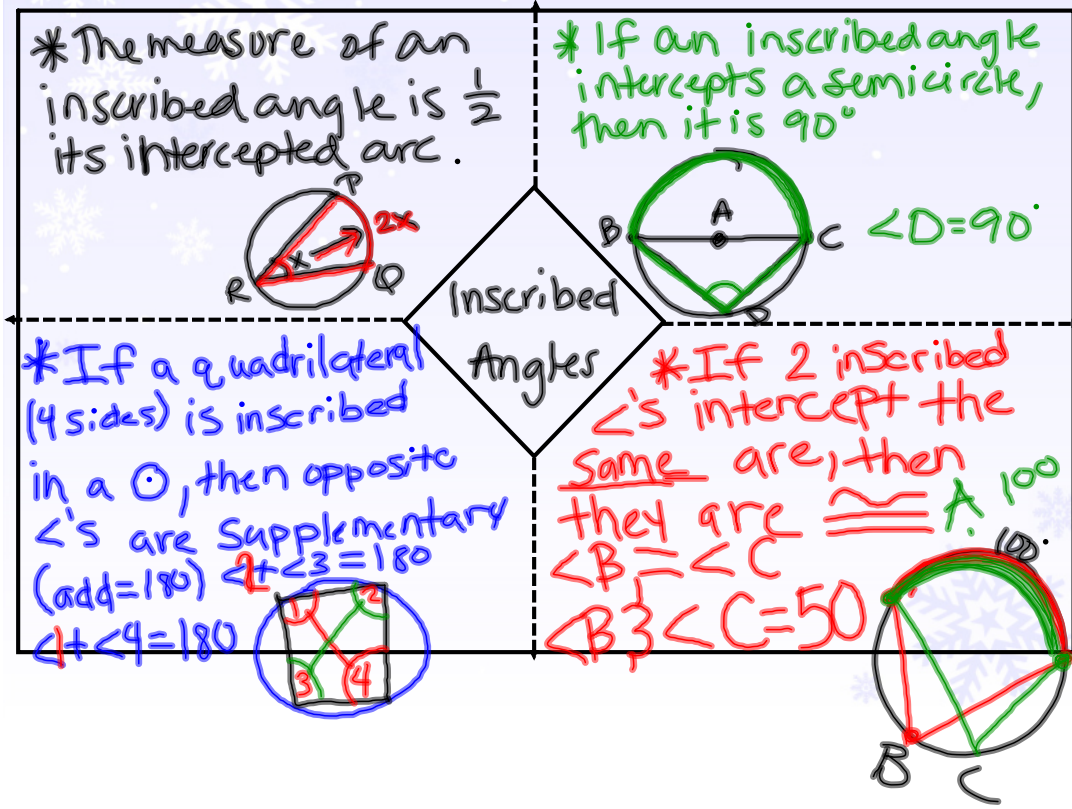 * The measure of an
inscribed angle is 1/2
its intercepted arc.
P
2x
x
R
Q
* If an inscribed angle
intercepts a semicircle,
then it is 90°
A
B
C
<D=90°
D
Inscribed
Angles
* If a quadrilateral
(4 sides) is inscribed
in a ⊙, then opposite
<'s are supplementary
(add=180) <2+<3=180
<1+<4=180
1
2
3
4
* If 2 inscribed
<'s intercept the
same arc, then
they are ≅
<B=<C
<B & <C=50
A. 100
100°
B
C